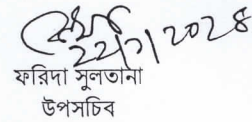 22/7/2024
ফরিদা সুলতানা
উপসচিব